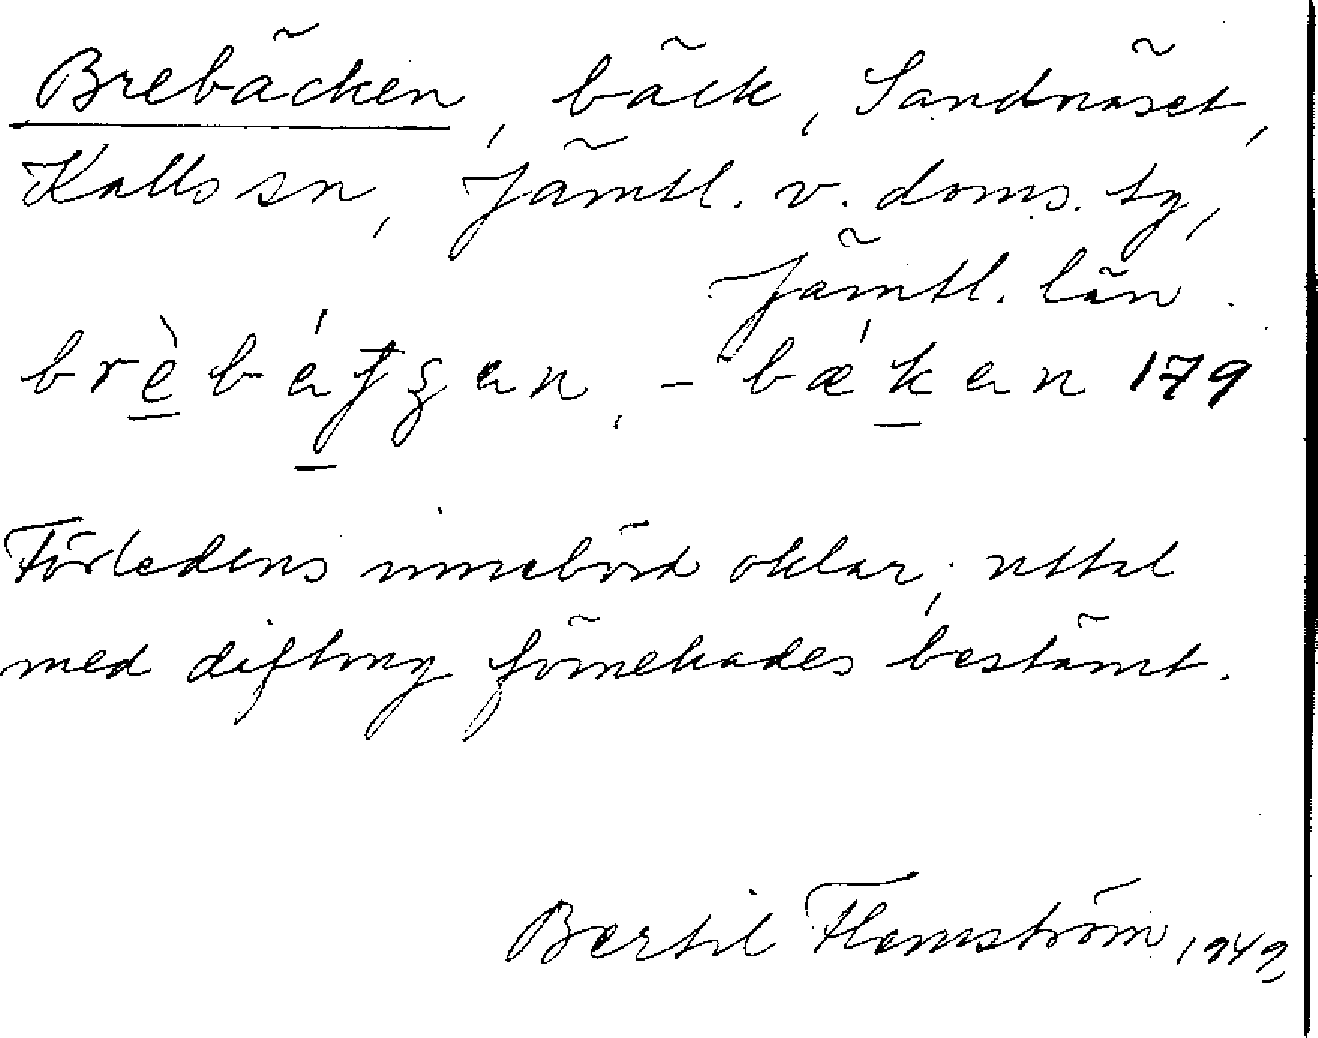 Brebäcken, bäck, Sandnäset,
Kalls sn, Jämtl. v. doms. tg,
Jämtl. län.
brè̱bátʒan, -bǽḵan 179
Förledens innebörd oklar; uttal
med diftong förnekades bestämt.
Bertil Flemström 1949